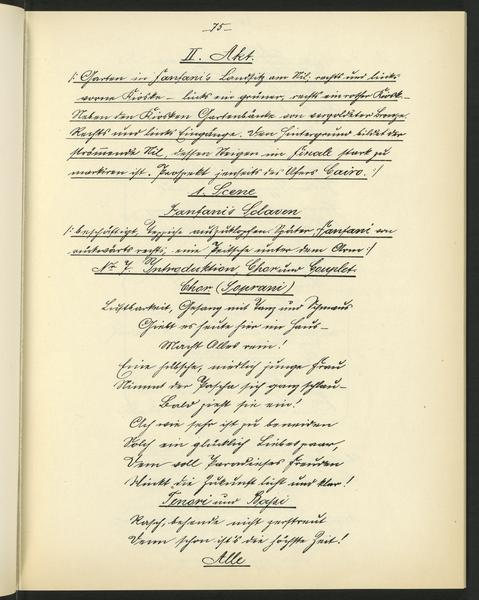 -75-
II. Akt.
/: Garten in Fanfani's Landsitz am Nil, rechts und links
vorne Kioske – links ein grüner, rechts ein roter Kiosk. –
Neben den Kiosken Gartenbänke von vergoldeter Bronze.
Rechts und links Eingänge. Den Hintergrund bildet der
strömende Nil, dessen Steigen im Finale stark zu
markiren ist. Prospekt jenseits des Ufers Cairo. :/
1. Scene
Fanfani's Sclaven
/: beschäftigt, Teppiche auszuklopfen. Später Fanfani von
rückwärts rechts, eine Peitsche unter dem Arm :/
No 7. Introduktion, Chor und Couplet.
Chor (Soprani)
Lustbarkeit, Gesang mit Tanz und Schmaus
Giebt es heute hier im Haus –
Macht Alles rein!
Eine hübsche, niedlich junge Frau
Nimmt der Pascha sich ganz schlau –
Bald zieht sie ein!
Ach wie sehr ist zu beneiden
Solch ein glücklich Liebespaar,
Dem voll Paradieses Freuden
Winkt die Zukunft licht und klar!
Tenori und Bassi
Rasch, behende nicht zerstreut
Denn schon ist's die höchste Zeit!
Alle